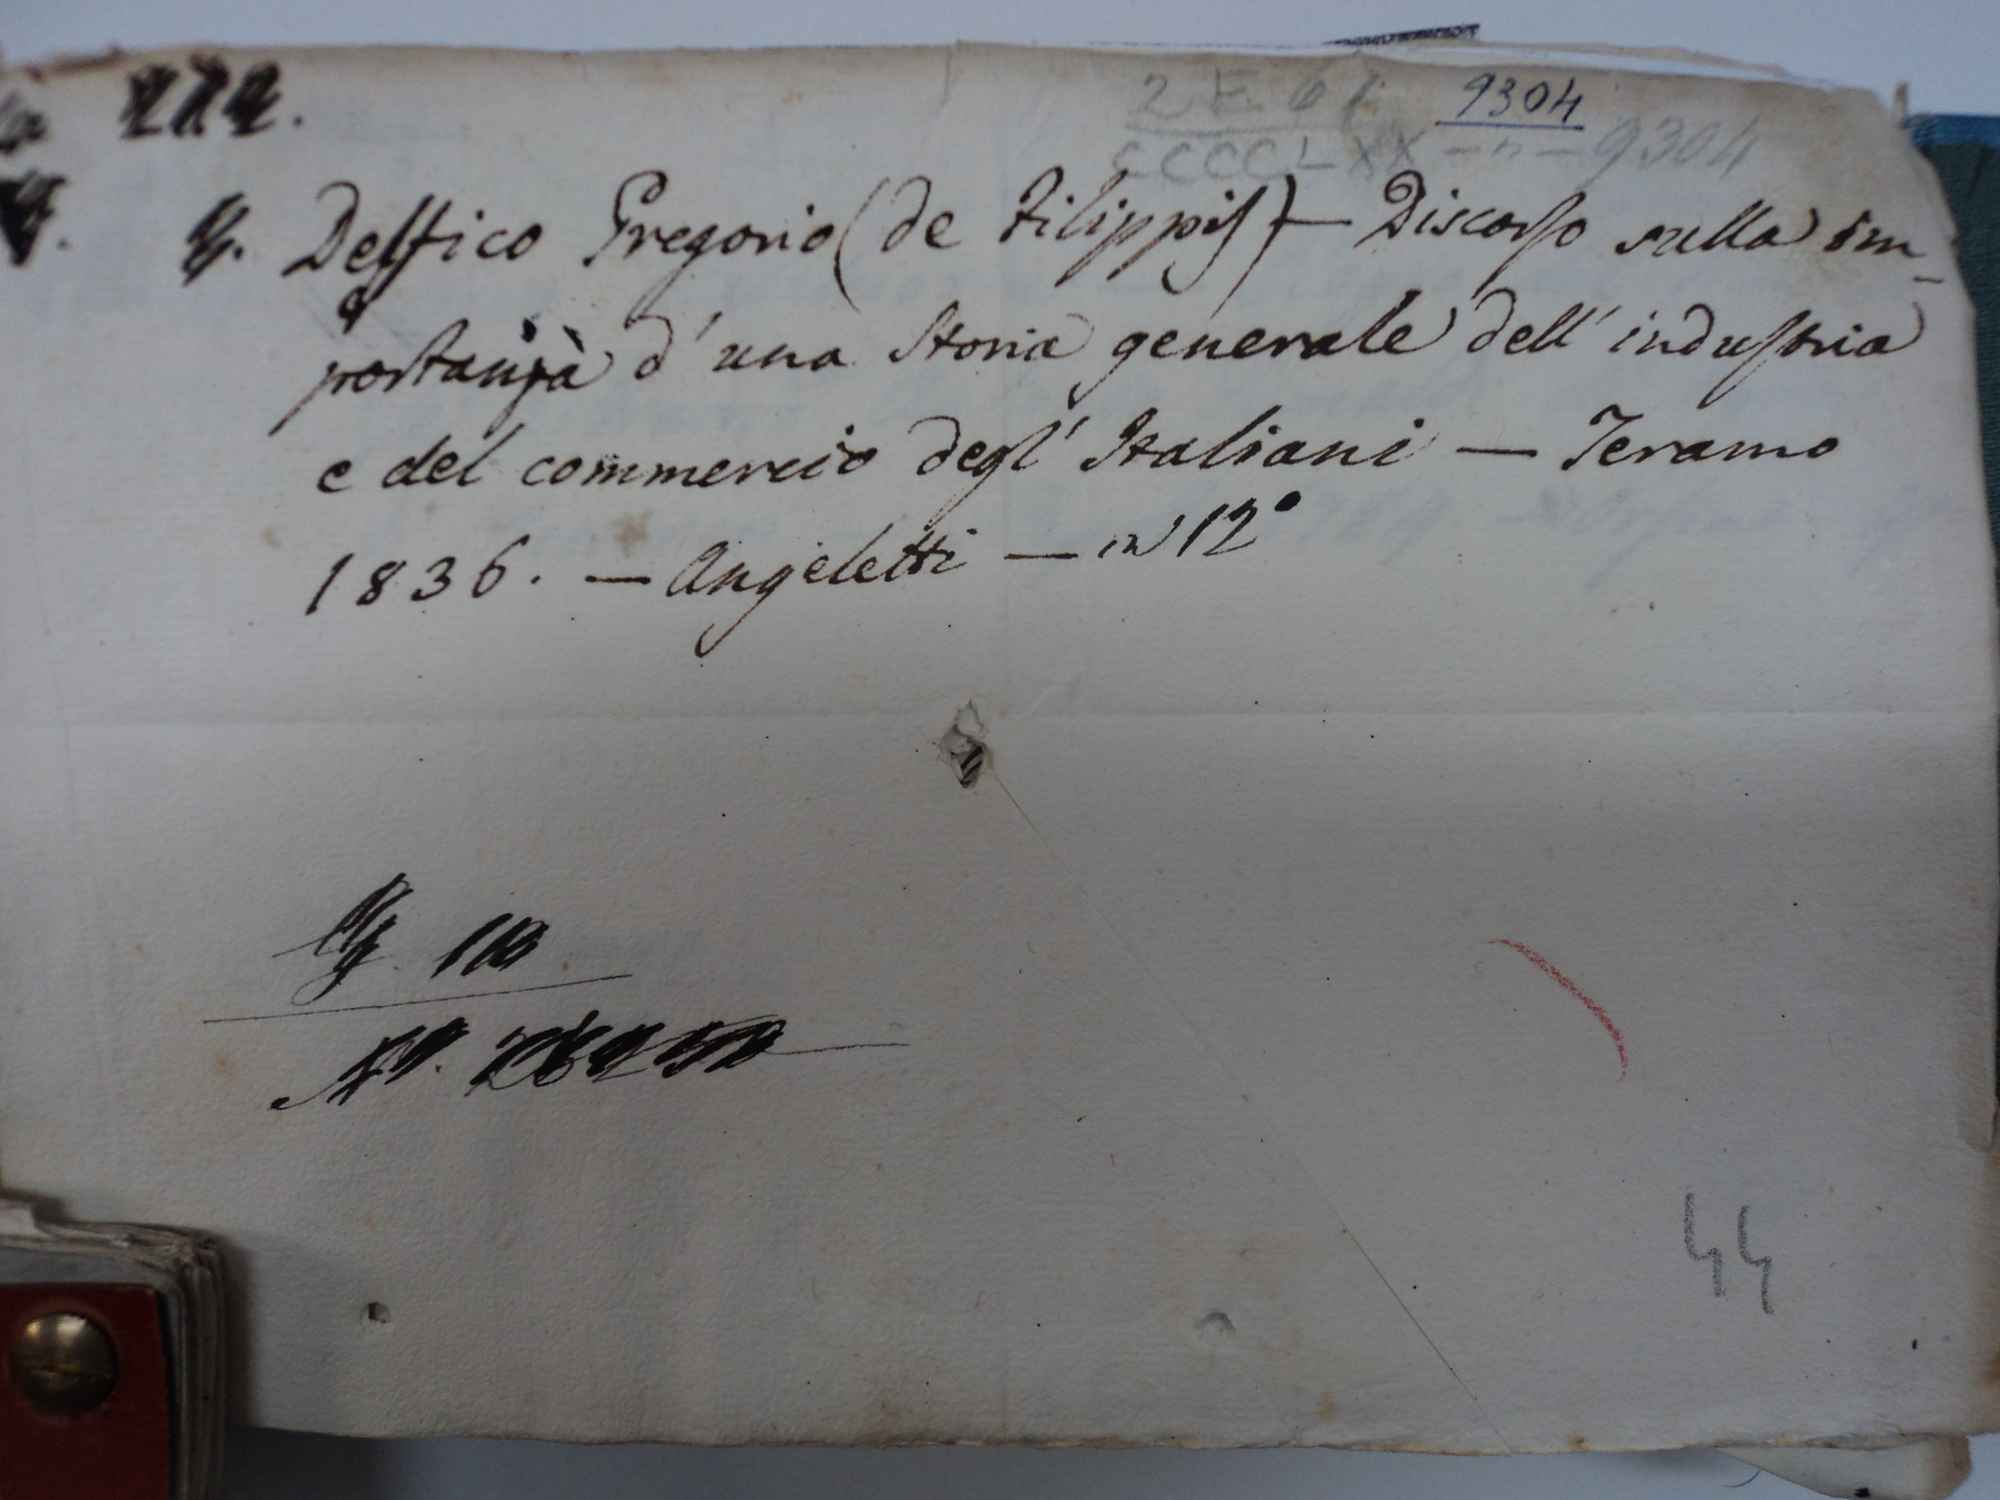 9304
9304
Delfico Gregorio (de Filippis) — Discorso sulla im-
portanza d'una Storia generale dell'industria
e del commercio degl'Italiani — Teramo
1836. — Angeletti — in 12°
44